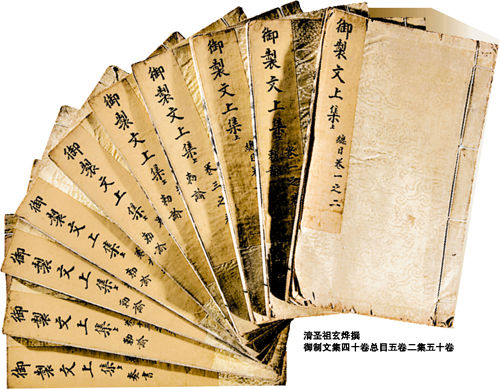 御製文上集 總目卷一之二
御製文上集
御製文上集
御製文上集 勅諭
御製文上集 勅諭
御製文上集 勅諭
御製文上集 勅諭
御製文上集 勅諭
御製文上集 勅諭
御製文上集 奏書
清圣祖玄烨撰
御制文集四十卷总目五卷二集五十卷